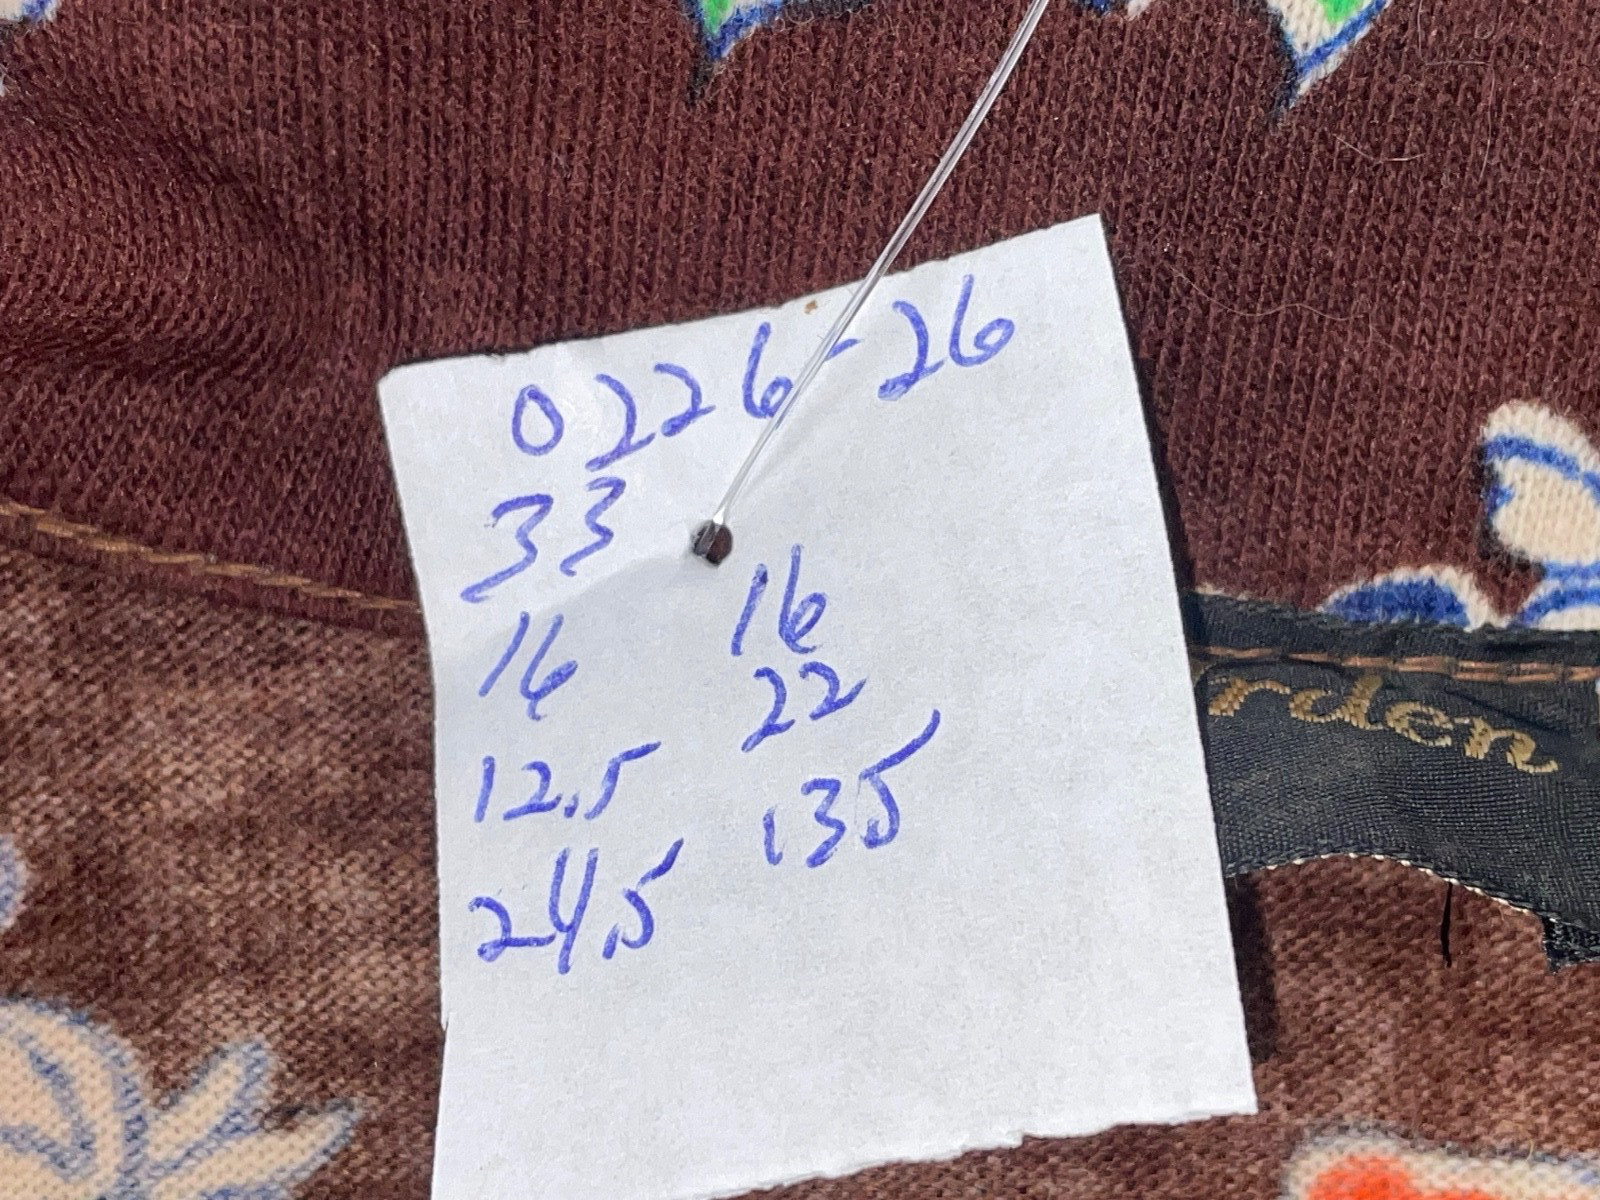 0226-26
33
16
12.5
24.5
16
22
13.5
rden